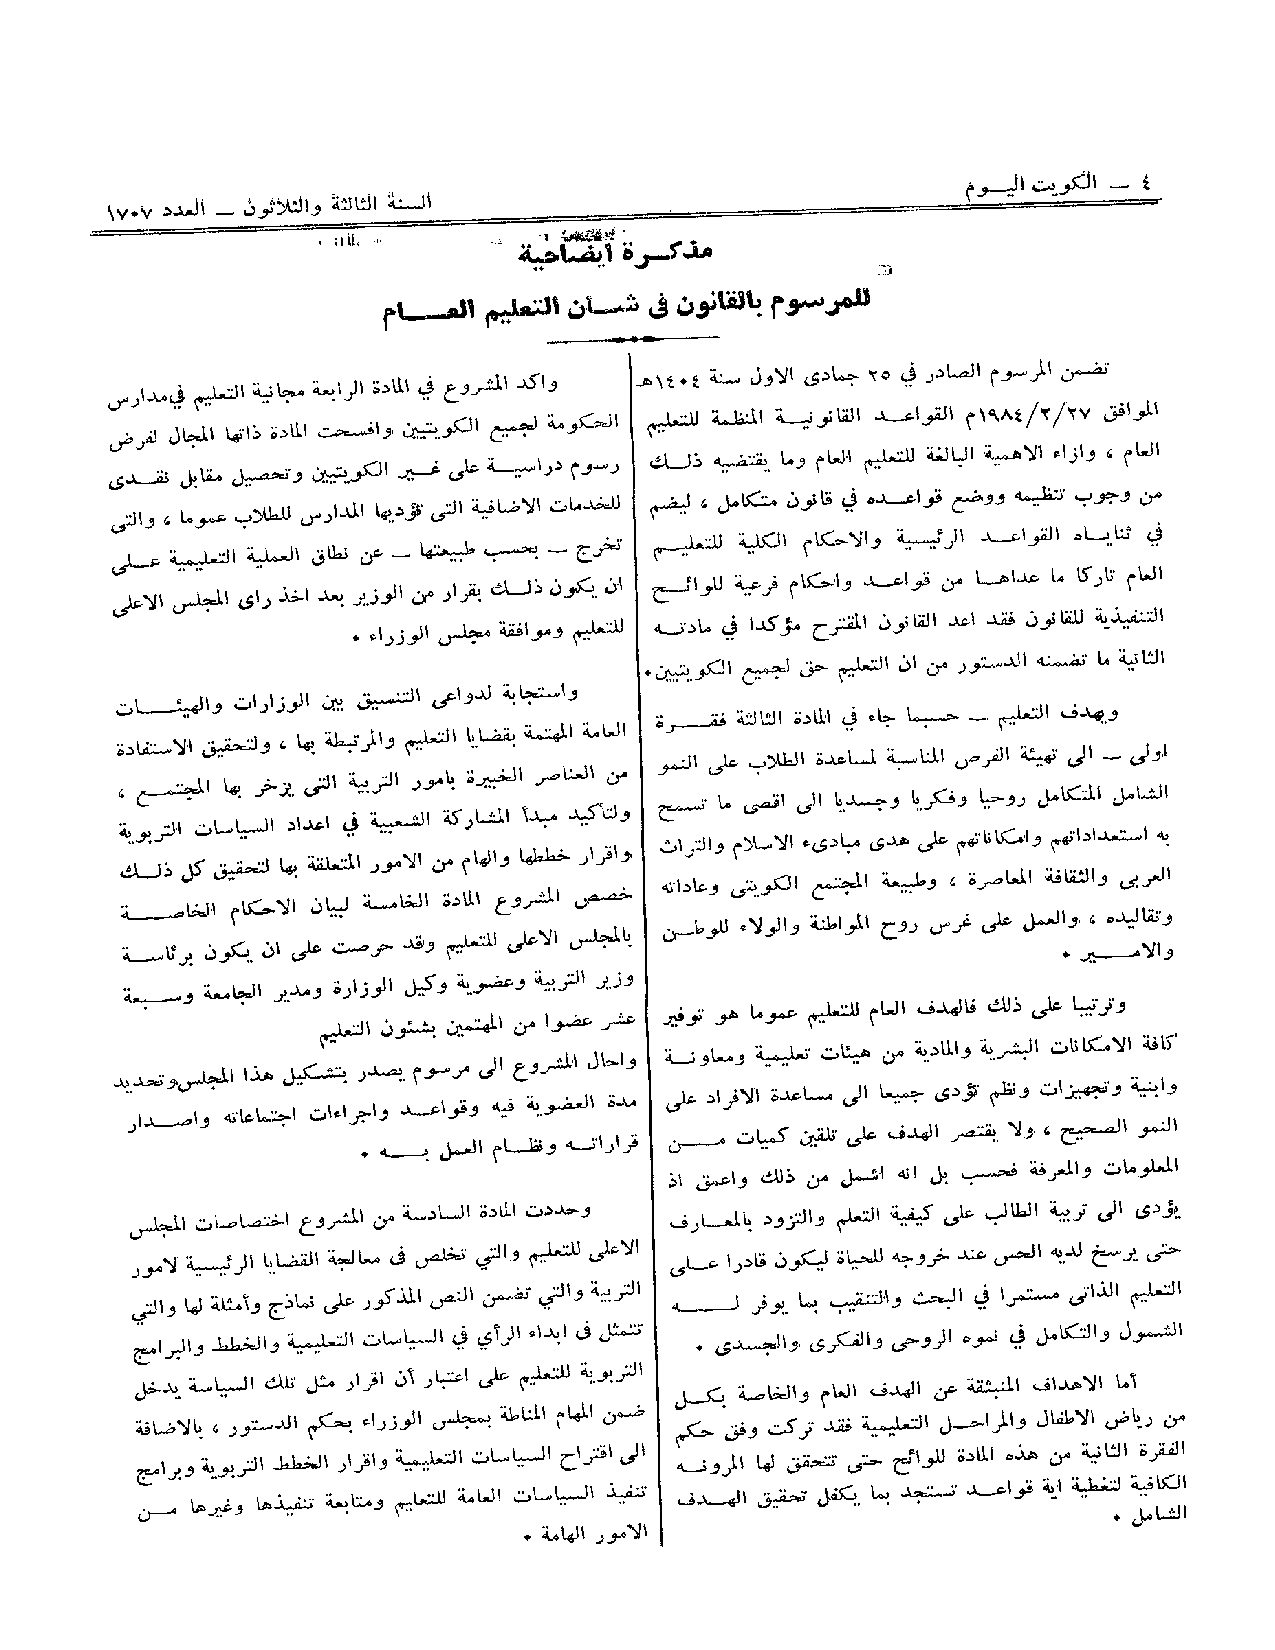 ٤ ــ الكويت اليــوم
السنة الثالثة والثلاثون ــ العدد ١٧٠٧
مذكــرة أيضاحية
للمرسوم بالقانون فى شــأن التعليم العـــام
تضمن المرسوم الصادر في ٢٥ جمادى الاول سنة ١٤٠٤هـ
الموافق ١٩٨٤/٢/٢٧م القواعــد القانونيــة المنظمة للتعليم
العام ، وازاء الاهمية البالغة للتعليم العام وما يقتضيه ذلــك
من وجوب تنظيمه ووضع قواعــده في قانون متكامل ، ليضم
في ثنايــاه القواعــد الرئيسية والاحكام الكلية للتعليــم
العام تاركا ما عداهــا من قواعــد واحكام فرعية للوائــح
التنفيذية للقانون فقد اعد القانون المقترح مؤكدا في مادتــه
الثانية ما تضمنه الدستور من ان التعليم حق لجميع الكويتيين٠
ويهدف التعليم ــ حسبما جاء في المادة الثالثة فقــرة
اولى ــ الى تهيئة الفرص المناسبة لمساعدة الطلاب على النمو
الشامل المتكامل روحيا وفكريا وجسديا الى اقصى ما تسمح
به استعداداتهم وامكاناتهم على هدى مبادىء الاسلام والتراث
العربى والثقافة المعاصرة ، وطبيعة المجتمع الكويتى وعاداته
وتقاليده ، والعمل على غرس روح المواطنة والولاء للوطــن
والامــير ٠
وترتيبا على ذلك فالهدف العام للتعليم عموما هو توفير
كافة الامكانات البشرية والمادية من هيئات تعليمية ومعاونــة
وابنية وتجهيزات ونظم تؤدى جميعا الى مساعدة الافراد على
النمو الصحيح ، ولا يقتصر الهدف على تلقين كميات مــن
المعلومات والمعرفة فحسب بل انه اشمل من ذلك واعمق اذ
يؤدى الى تربية الطالب على كيفية التعلم والتزود بالمعــارف
حتى يرسخ لديه الحس عند خروجه للحياة ليكون قادرا عــلى
التعليم الذاتى مستمرا في البحث والتنقيب بما يوفر لــــه
الشمول والتكامل في نموه الروحى والفكرى والجسدى ٠
أما الاهداف المنبثقة عن الهدف العام والخاصة بكــل
من رياض الاطفال والمراحــل التعليمية فقد تركت وفق حكم
الفقرة الثانية من هذه المادة للوائح حتى تتحقق لها المرونــه
الكافية لتغطية اية قواعــد تستجد بما يكفل تحقيق الهــدف
الشامل ٠
واكد المشروع في المادة الرابعة مجانية التعليم في مدارس
الحكومة لجميع الكويتيين وافسحت المادة ذاتها المجال لفرض
رسوم دراسيــة على غــير الكويتيين وتحصيل مقابل نقــدى
للخدمات الاضافية التى تؤديها المدارس للطلاب عموما ، والتى
تخرج ــ بحسب طبيعتها ــ عن نطاق العملية التعليمية عــلى
ان يكون ذلــك بقرار من الوزير بعد اخذ راى المجلس الاعلى
للتعليم وموافقة مجلس الوزراء ٠
واستجابة لدواعى التنسيق بين الوزارات والهيئــات
العامة المهتمة بقضايا التعليم والمرتبطة بها ، ولتحقيق الاستفادة
من العناصر الخبيرة بامور التربية التى يزخر بها المجتمــع ،
ولتأكيد مبدأ المشاركة الشعبية في اعداد السياسات التربوية
واقرار خططها والهام من الامور المتعلقة بها لتحقيق كل ذلــك
خصص المشروع المادة الخامسة لبيان الاحكام الخاصــة
بالمجلس الاعلى للتعليم وقد حرصت على ان يكون برئاســة
وزير التربية وعضوية وكيل الوزارة ومدير الجامعة وســبعة
عشر عضوا من المهتمين بشئون التعليم
واحال المشروع الى مرسوم يصدر بتشكيل هذا المجلس وتحديد
مدة العضوية فيه وقواعــد واجراءات اجتماعاته واصــدار
قراراتــه ونظــام العمل بــه ٠
وحددت المادة السادسة من المشروع اختصاصات المجلس
الاعلى للتعليم والتي تخلص فى معالجة القضايا الرئيسية لامور
التربية والتي تضمن النص المذكور على نماذج وأمثلة لها والتي
تتمثل فى ابداء الرأي في السياسات التعليمية والخطط والبرامج
التربوية للتعليم على اعتبار أن اقرار مثل تلك السياسة يدخل
ضمن المهام المناطة بمجلس الوزراء بحكم الدستور ، بالاضافة
الى اقتراح السياسات التعليمية واقرار الخطط التربوية وبرامج
تنفيذ السياسات العامة للتعليم ومتابعة تنفيذها وغيرها مــن
الامور الهامة ٠